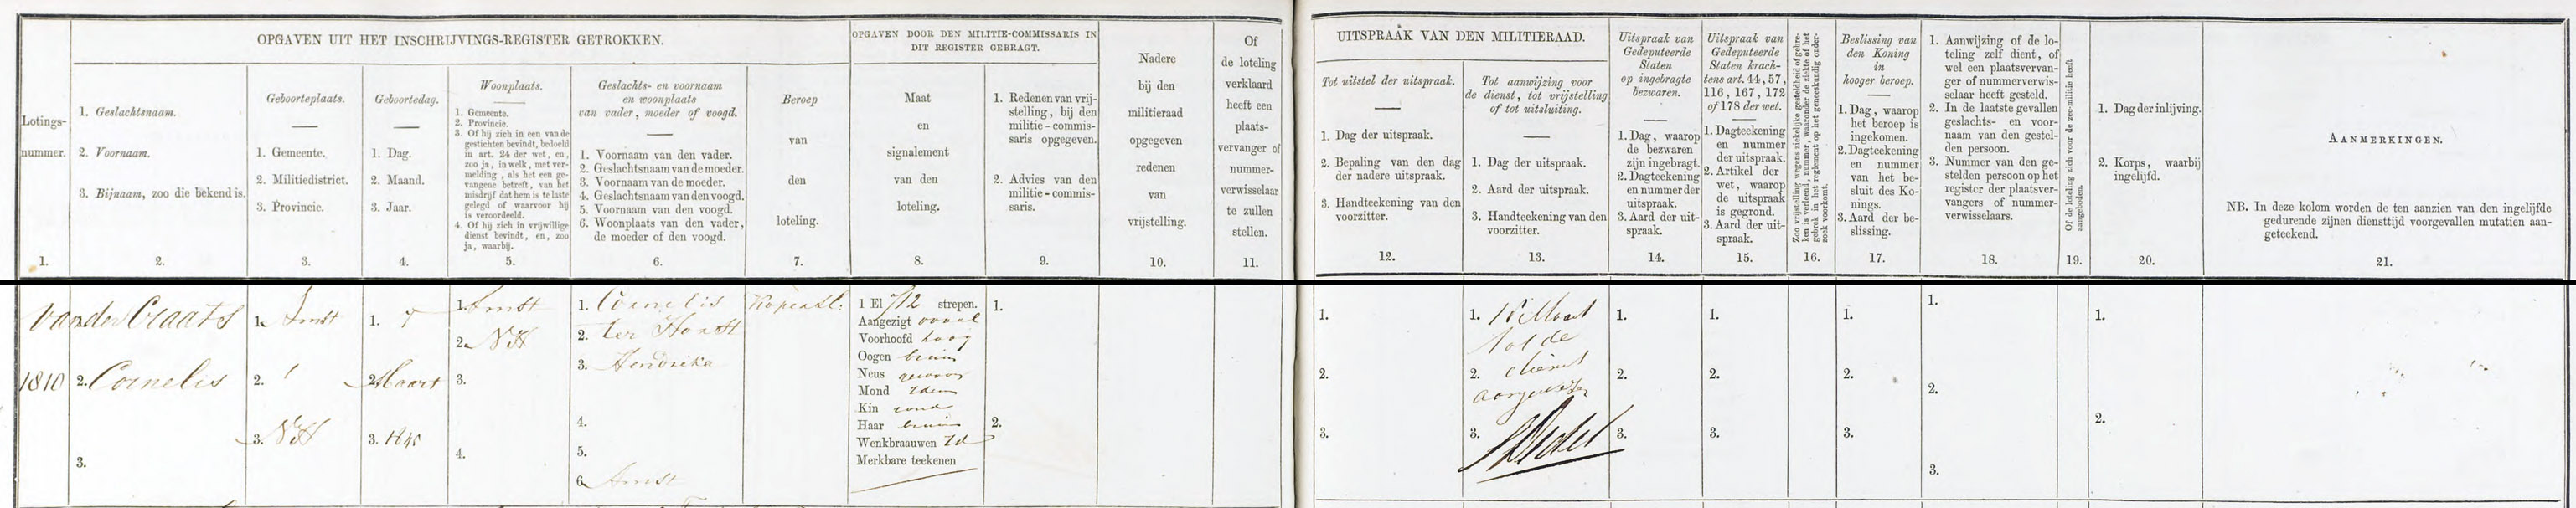 OPGAVEN UIT HET INSCHRIJVINGS-REGISTER GETROKKEN.
Lotings-
nummer.
1.
1. Geslachtsnaam.
2. Voornaam.
3. Bijnaam, zoo die bekend is.
2.
Geboorteplaats.
1. Gemeente.
2. Militiedistrict.
3. Provincie.
3.
Geboortedag.
1. Dag.
2. Maand.
3. Jaar.
4.
Woonplaats.
1. Gemeente.
2. Provincie.
3. Of hij zich in een van de
gestichten bevindt, bedoeld
in art. 24 der wet, en,
zoo ja, in welk, met ver-
melding, als het een ge-
vangene betreft, van het
misdrijf dat hem is te laste
gelegd of waarvoor hij
is veroordeeld.
4. Of hij zich in vrijwillige
dienst bevindt, en, zoo
ja, waarbij.
5.
Geslachts- en voornaam
en woonplaats
van vader, moeder of voogd.
1. Voornaam van den vader.
2. Geslachtsnaam van de moeder.
3. Voornaam van de moeder.
4. Geslachtsnaam van den voogd.
5. Voornaam van den voogd.
6. Woonplaats van den vader,
de moeder of den voogd.
6.
Beroep
van
den
loteling.
7.
OPGAVEN DOOR DEN MILITIE-COMMISSARIS IN
DIT REGISTER GEBRAGT.
Maat
en
signalement
van den
loteling.
8.
1. Redenen van vrij-
stelling, bij den
militie-commis-
saris opgegeven.
2. Advies van den
militie-commis-
saris.
9.
Nadere
bij den
militieraad
opgegeven
redenen
van
vrijstelling.
10.
Of
de loteling
verklaard
heeft een
plaats-
vervanger of
nummer-
verwisselaar
te zullen
stellen.
11.
UITSPRAAK VAN DEN MILITIERAAD.
Tot uitstel der uitspraak.
1. Dag der uitspraak.
2. Bepaling van den dag
der nadere uitspraak.
3. Handteekening van den
voorzitter.
12.
Tot aanwijzing voor
de dienst, tot vrijstelling
of tot uitsluiting.
1. Dag der uitspraak.
2. Aard der uitspraak.
3. Handteekening van den
voorzitter.
13.
Uitspraak van
Gedeputeerde
Staten
op ingebragte
bezwaren.
1. Dag, waarop
de bezwaren
zijn ingebragt.
2. Dagteekening
en nummer der
uitspraak.
3. Aard der uit-
spraak.
14.
Uitspraak van
Gedeputeerde
Staten krach-
tens art. 44, 57,
116, 167, 172
of 178 der wet.
1. Dagteekening
en nummer
der uitspraak.
2. Artikel der
wet, waarop
de uitspraak
is gegrond.
3. Aard der uit-
spraak.
15.
Zoo vrijstelling wegens ziekelijke gesteldheid of gebre-
ken is verleend, nummer, waaronder de ziekte of het
gebrek in het reglement op het geneeskundig onder-
zoek voorkomt.
16.
Beslissing van
den Koning
in
hooger beroep.
1. Dag, waarop
het beroep is
ingekomen.
2. Dagteekening
en nummer
van het be-
sluit des Ko-
nings.
3. Aard der be-
slissing.
17.
1. Aanwijzing of de lo-
teling zelf dient, of
wel een plaatsvervan-
ger of nummerverwis-
selaar heeft gesteld.
2. In de laatste gevallen
geslachts- en voor-
naam van den gestel-
den persoon.
3. Nummer van den ge-
stelden persoon op het
register der plaatsver-
vangers of nummer-
verwisselaars.
18.
Of de loteling zich voor de zee-militie heeft
aangeboden.
19.
1. Dag der inlijving.
2. Korps, waarbij
ingelijfd.
20.
AANMERKINGEN.
NB. In deze kolom worden de ten aanzien van den ingelijfde
gedurende zijnen diensttijd voorgevallen mutatien aan-
geteekend.
21.
1810
van der Craats
2. Cornelis
3.
1. Amst
2. 1
3. NH
1. 7
2. Maart
3. 1840
1. Amst
2. NH
3.
4.
1. Cornelis
2. ter Horst
3. Hendrika
4.
5.
6. Amst
1 El 712 strepen.
Aangezigt ovaal
Voorhoofd hoog
Oogen bruin
Neus gewoon
Mond idem
Kin rond
Haar bruin
Wenkbraauwen id
Merkbare teekenen
1.
2.
1.
2.
3.
1. 18 Maart
tot de
2. dienst
aangewezen
3.
1.
2.
3.
1.
2.
3.
1.
2.
3.
1.
2.
3.
1.
2.